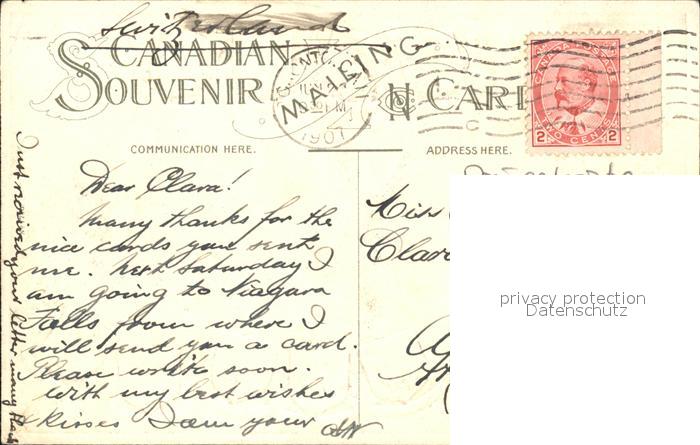 Switzerland
CANADIAN
SOUVENIR MAILING CARD
1907
CANADA POSTAGE
2 TWO CENTS 2
COMMUNICATION HERE. ADDRESS HERE.
Dear Clara!
Many thanks for the
nice cards you sent
me. Next Saturday I
am going to Niagara
Falls from where I
will send you a card.
Please write soon.
With my best wishes
& kisses I am your
Just received your letter many thanks
Miss
Clara
privacy protection
Datenschutz